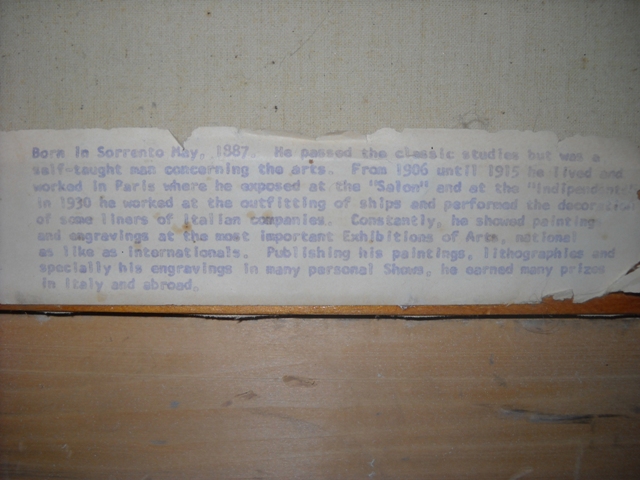 Born in Sorrento May, 1887. He passed the classic studies but was a
self-taught man concerning the arts. From 1906 until 1915 he lived and
worked in Paris where he exposed at the "Salon" and at the "Independents"
in 1930 he worked at the outfitting of ships and performed the decoration
of some liners of Italian companies. Constantly, he showed paintings
and engravings at the most important Exhibitions of Arts, national
as like as internationals. Publishing his paintings, lithographies and
specially his engravings in many personal Shows, he earned many prizes
in Italy and abroad.